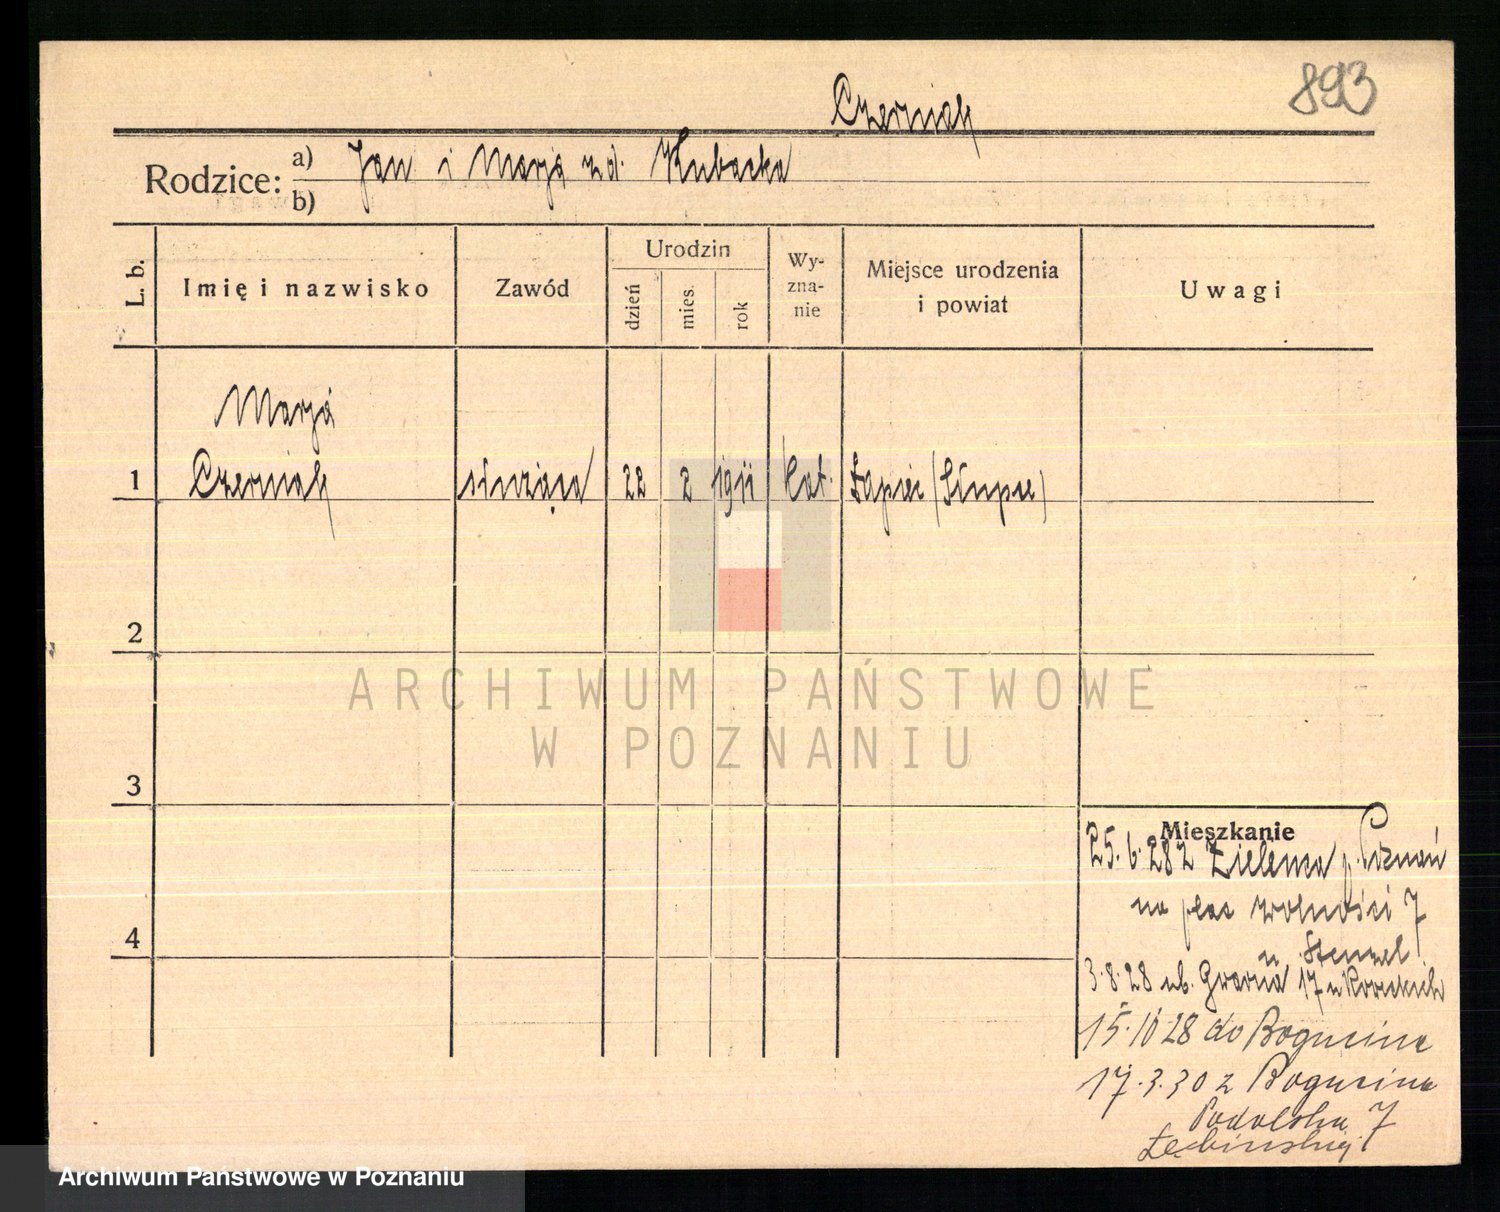 893
Czerniak
Rodzice: a) Jan i Marja zd. Kubacka
b)
L. b.
Imię i nazwisko
Zawód
Urodzin
dzień
mies.
rok
Wy-
zna-
nie
Miejsce urodzenia
i powiat
Uwagi
Marja
1 Czerniak służąca 22 2 1911 kat. Łagiew (Słupca)
2
3
4
Mieszkanie
25.6.28 z Zieleńca p. Poznań
na plac Wolności 7
u Stenzel
3.8.28 ul. Gwarna 17 u
15.10 28 do Bogucina
17.3.30 z Bogucina
Podolska 7
ARCHIWUM PAŃSTWOWE
W POZNANIU
Archiwum Państwowe w Poznaniu